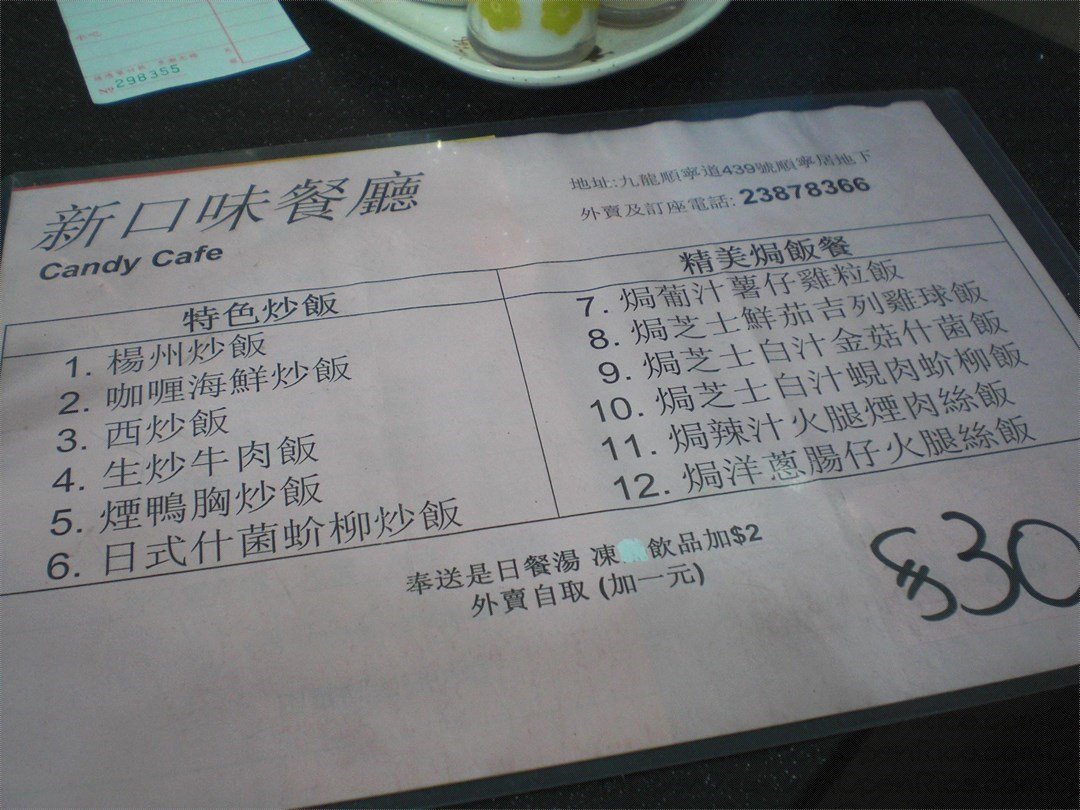 № 298355
新口味餐廳
Candy Cafe
地址:九龍順寧道439號順寧居地下
外賣及訂座電話: 23878366
特色炒飯
1. 楊州炒飯
2. 咖喱海鮮炒飯
3. 西炒飯
4. 生炒牛肉飯
5. 煙鴨胸炒飯
6. 日式什菌蚧柳炒飯
精美焗飯餐
7. 焗葡汁薯仔雞粒飯
8. 焗芝士鮮茄吉列雞球飯
9. 焗芝士白汁金菇什菌飯
10. 焗芝士白汁蜆肉蚧柳飯
11. 焗辣汁火腿煙肉絲飯
12. 焗洋蔥腸仔火腿絲飯
奉送是日餐湯 凍 飲品加$2
外賣自取 (加一元)
$30